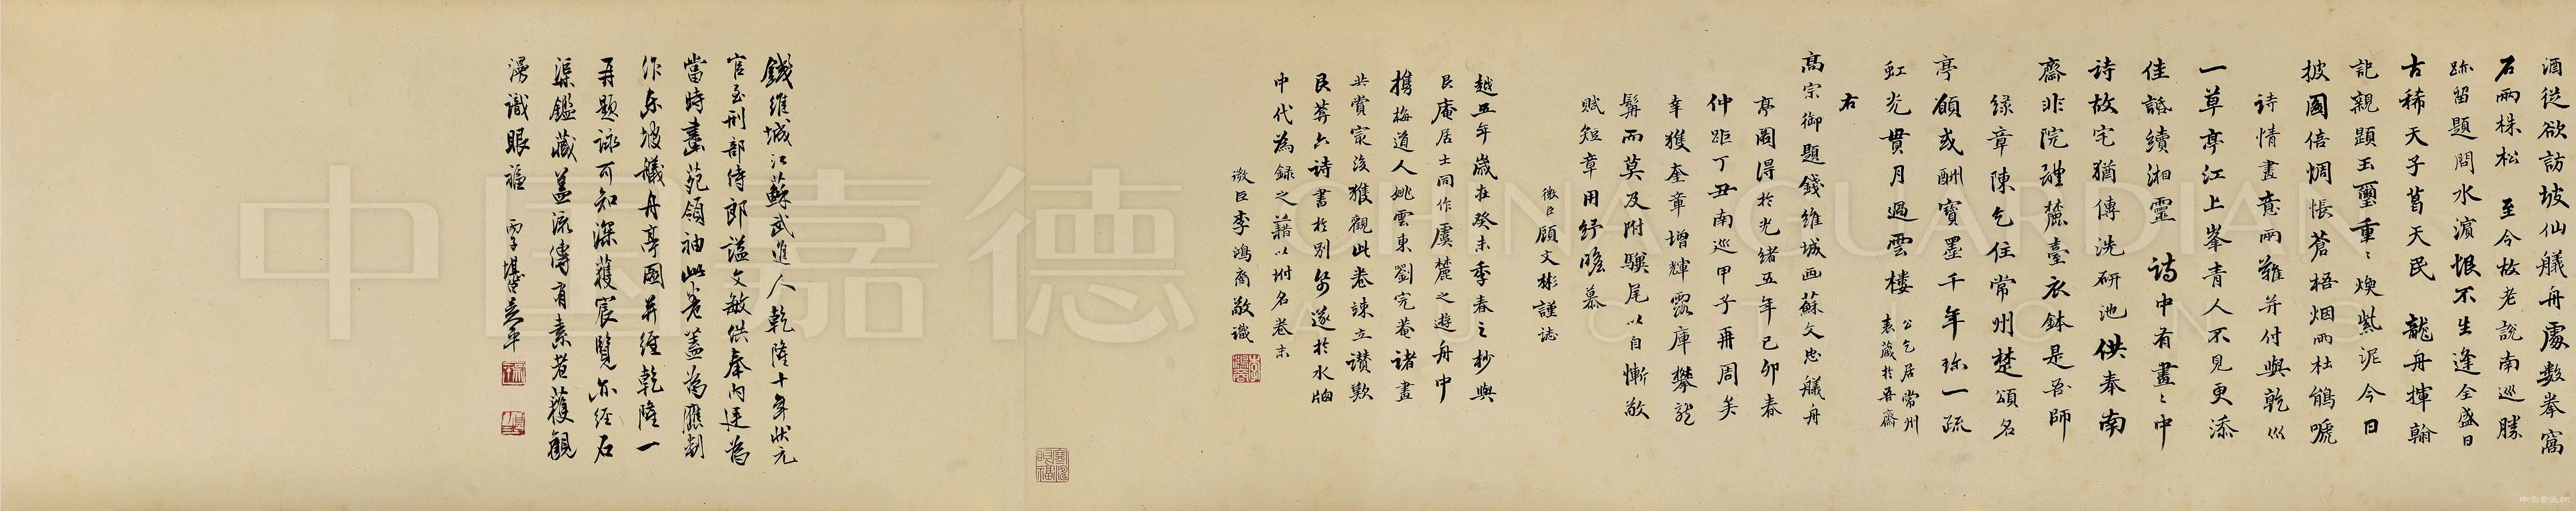 酒從欲訪坡仙艤舟處數拳窩
石兩株松　至今故老說南巡勝
跡留題問水濱恨不生逢全盛日
古稀天子葛天民　龍舟揮翰
記親題玉璽重〻煥紫泥今日
披圖倍惆悵蒼梧烟雨杜鵑嗁
詩情畫意兩難并付與乾巛
一草亭江上峯青人不見更添
佳話續湘靈　詩中有畫〻中
詩故宅猶傳洗研池供奉南
齋非院體蘇臺衣鉢是吾師
綠章陳乞住常州楚頌名
亭願或酬寶墨千年珎一疏
虹光貫月過雲樓　公乞居常州表藏於吾齋
右
高宗御題錢維城画蘇文忠艤舟
亭圖得於光緒五年己卯春
仲距丁丑南巡甲子再周矣
幸獲奎章增輝露庫攀龍
髯而莫及附驥尾以自慚敬
賦短章用紓瞻慕
微臣顧文彬謹誌
越五年歲在癸未季春之杪與
艮庵居士同作虞麓之遊舟中
攜梅道人姚雲東劉完菴諸畫
共賞最後獲觀此卷竦立讚歎
艮菴六詩書於別帋遂於水牕
中代為錄之藉以坿名卷末
微臣李鴻裔敬識
錢維城江蘇武進人乾隆十年狀元
官至刑部侍郎謚文敏供奉內廷為
當時畫苑領袖此卷蓋為應制
作東坡艤舟亭圖并經乾隆一
再題詠可知深獲宸覽亦經石
渠鑑藏蓋流傳有素者獲觀
漫識眼福　丙子堪白吳平
中国嘉德
CHINA GUARDIAN AUCTIONS